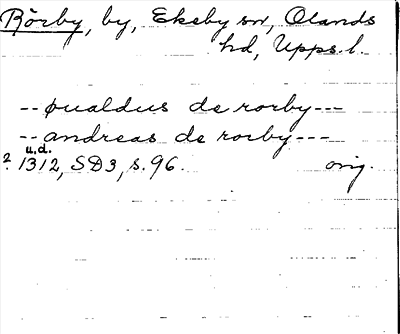 Rörby, by, Ekeby sn, Olands
hd, Upps.l.
-- øualdus de rorby ---
-- andreas de rorby ---
u.d.
? 1312, SD3, s. 96. orig.